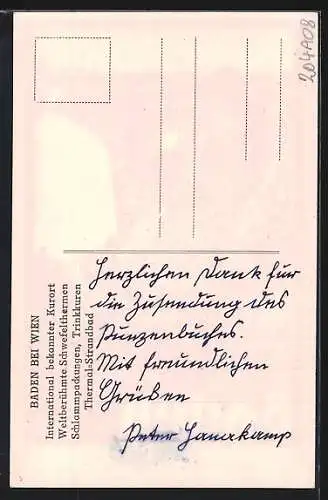 BADEN BEI WIEN
International bekannter Kurort
Weltberühmte Schwefelthermen
Schlammpackungen, Trinkkuren
Thermal-Strandbad
204A08
Herzlichen Dank für
die Zusendung des
Punzenbuches.
Mit freundlichen
Grüßen
Peter